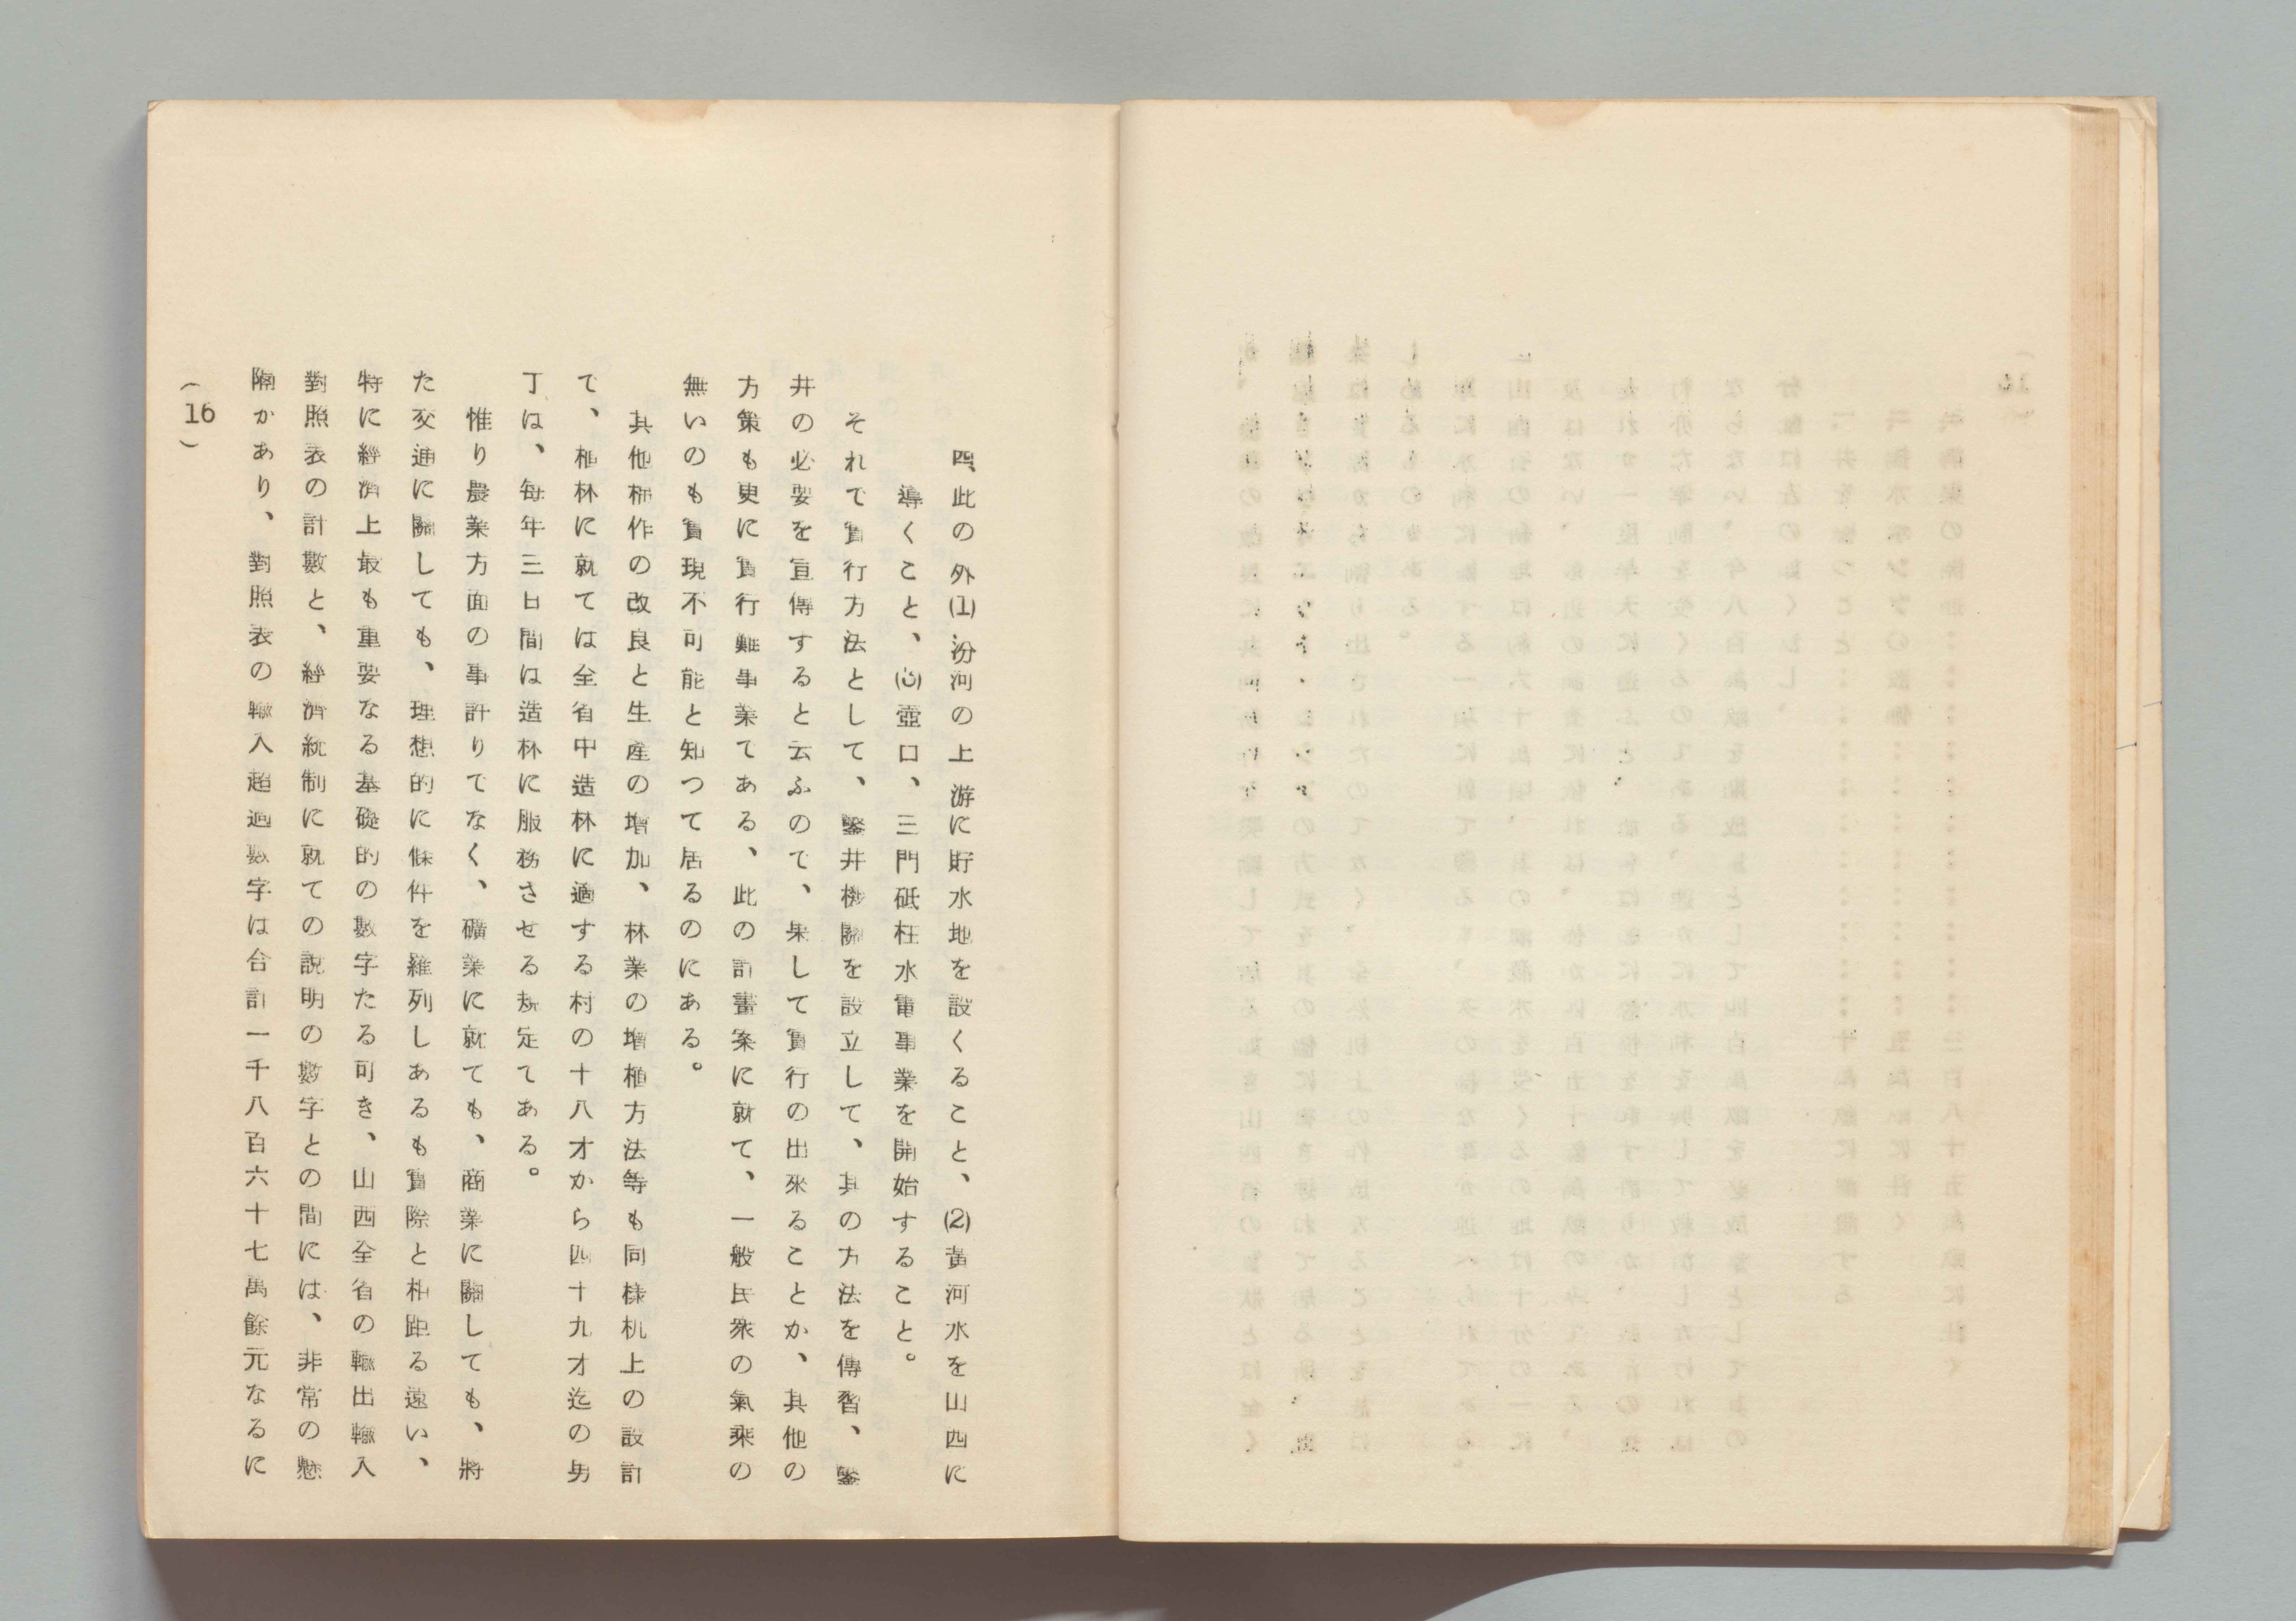 四、此の外(1)汾河の上游に貯水地を設くること、(2)黄河水を山西に
導くこと、(3)壺口、三門砥柱水電事業を開始すること。
それで實行方法として、鑿井機關を設立して、其の方法を傳習、鑿
井の必要を宣傳すると云ふので、果して實行の出來ることか、其他の
方策も更に實行難事業てある、此の計畫案に就て、一般民衆の氣乘の
無いのも實現不可能と知つて居るのにある。
其他棉作の改良と生産の增加、林業の增植方法等も同樣机上の設計
で、植林に就ては全省中造林に適する村の十八才から四十九才迄の男
丁は、每年三日間は造林に服務させる規定てある。
惟り農業方面の事計りでなく、礦業に就ても、商業に關しても、將
た交通に關しても、理想的に條件を羅列しあるも實際と相距る遠い、
特に經濟上最も重要なる基礎的の數字たる可き、山西全省の輸出輸入
對照表の計數と、經濟統制に就ての說明の數字との間には、非常の懸
隔かあり、對照表の輸入超過數字は合計一千八百六十七萬餘元なるに
(16)